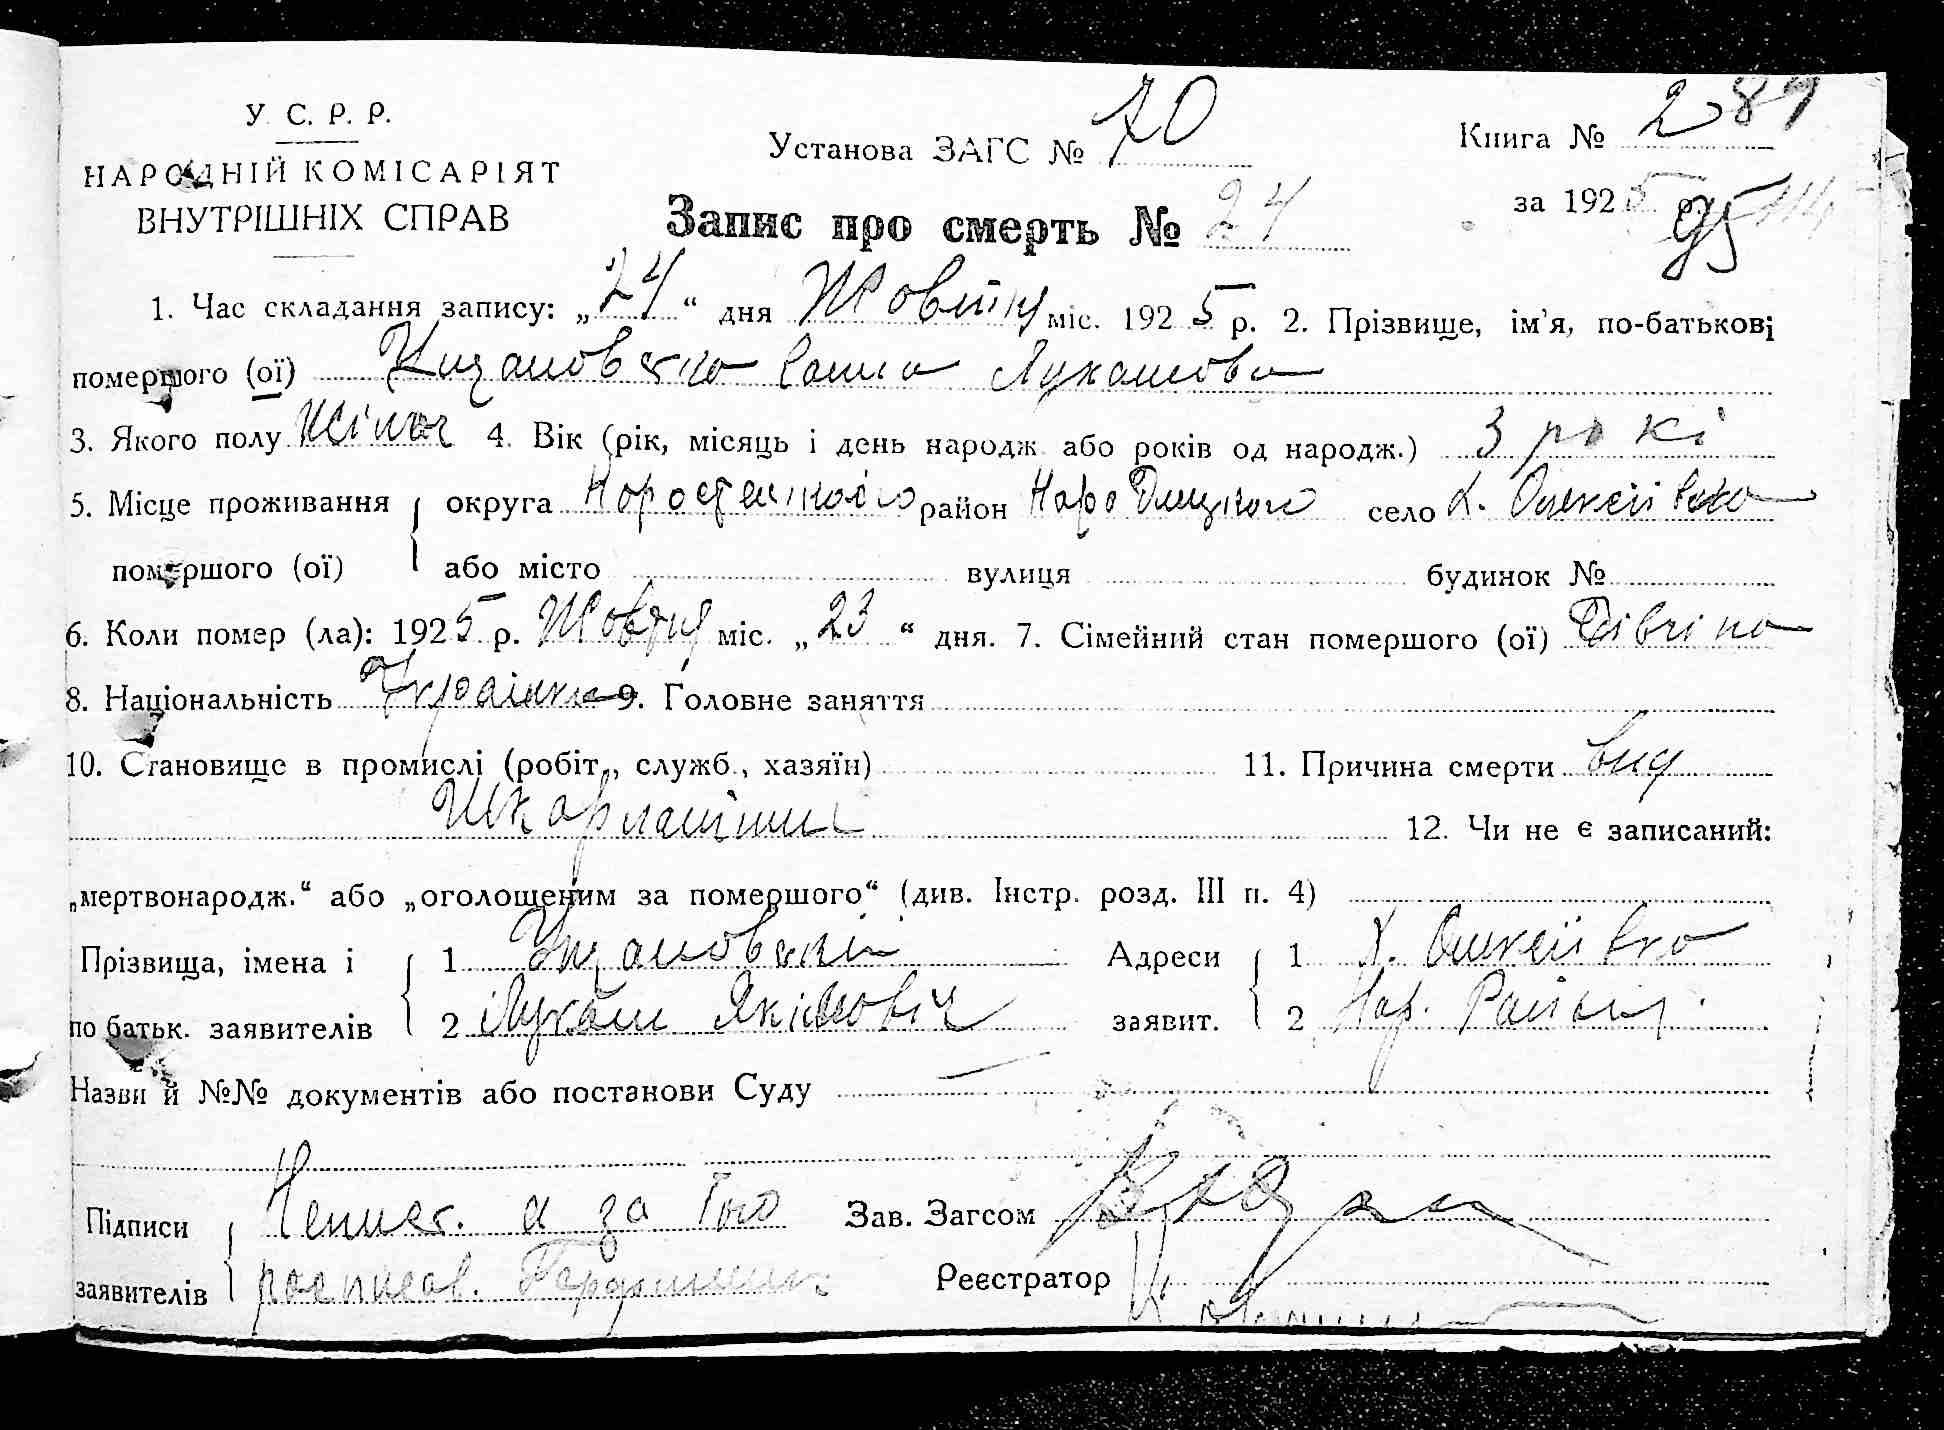 У. С. Р. Р.
НАРОДНІЙ КОМІСАРІЯТ
ВНУТРІШНІХ СПРАВ
Установа ЗАГС № 70
Книга № 2 89
за 1925 р. 95 114
Запис про смерть № 24
1. Час складання запису: „24“ дня Жовтня міс. 1925 р. 2. Прізвище, ім'я, по-батькові
помершого (ої) Лукашова
3. Якого полу Жіноч 4. Вік (рік, місяць і день народж. або років од народж.) 3 рокі
5. Місце проживання округа Коростенського район Народицького село х. Олексіївка
помершого (ої) або місто вулиця будинок №
6. Коли помер (ла): 1925 р. Жовтня міс. „23“ дня. 7. Сімейний стан помершого (ої) Дівчіна
8. Національність Українка 9. Головне заняття
10. Становище в промислі (робіт., служб., хазяїн) 11. Причина смерти від
Шкарлатини 12. Чи не є записаний:
„мертвонародж.“ або „оголощеним за помершого“ (див. Інстр. розд. III п. 4)
Прізвища, імена і 1 Адреси 1 х. Олексіївка
по батьк. заявителів 2 Лукаш Якімовіч заявит. 2 Нар. Району
Назви й №№ документів або постанови Суду —
Підписи Непись. а за того Зав. Загсом
заявителів росписав. Реєстратор